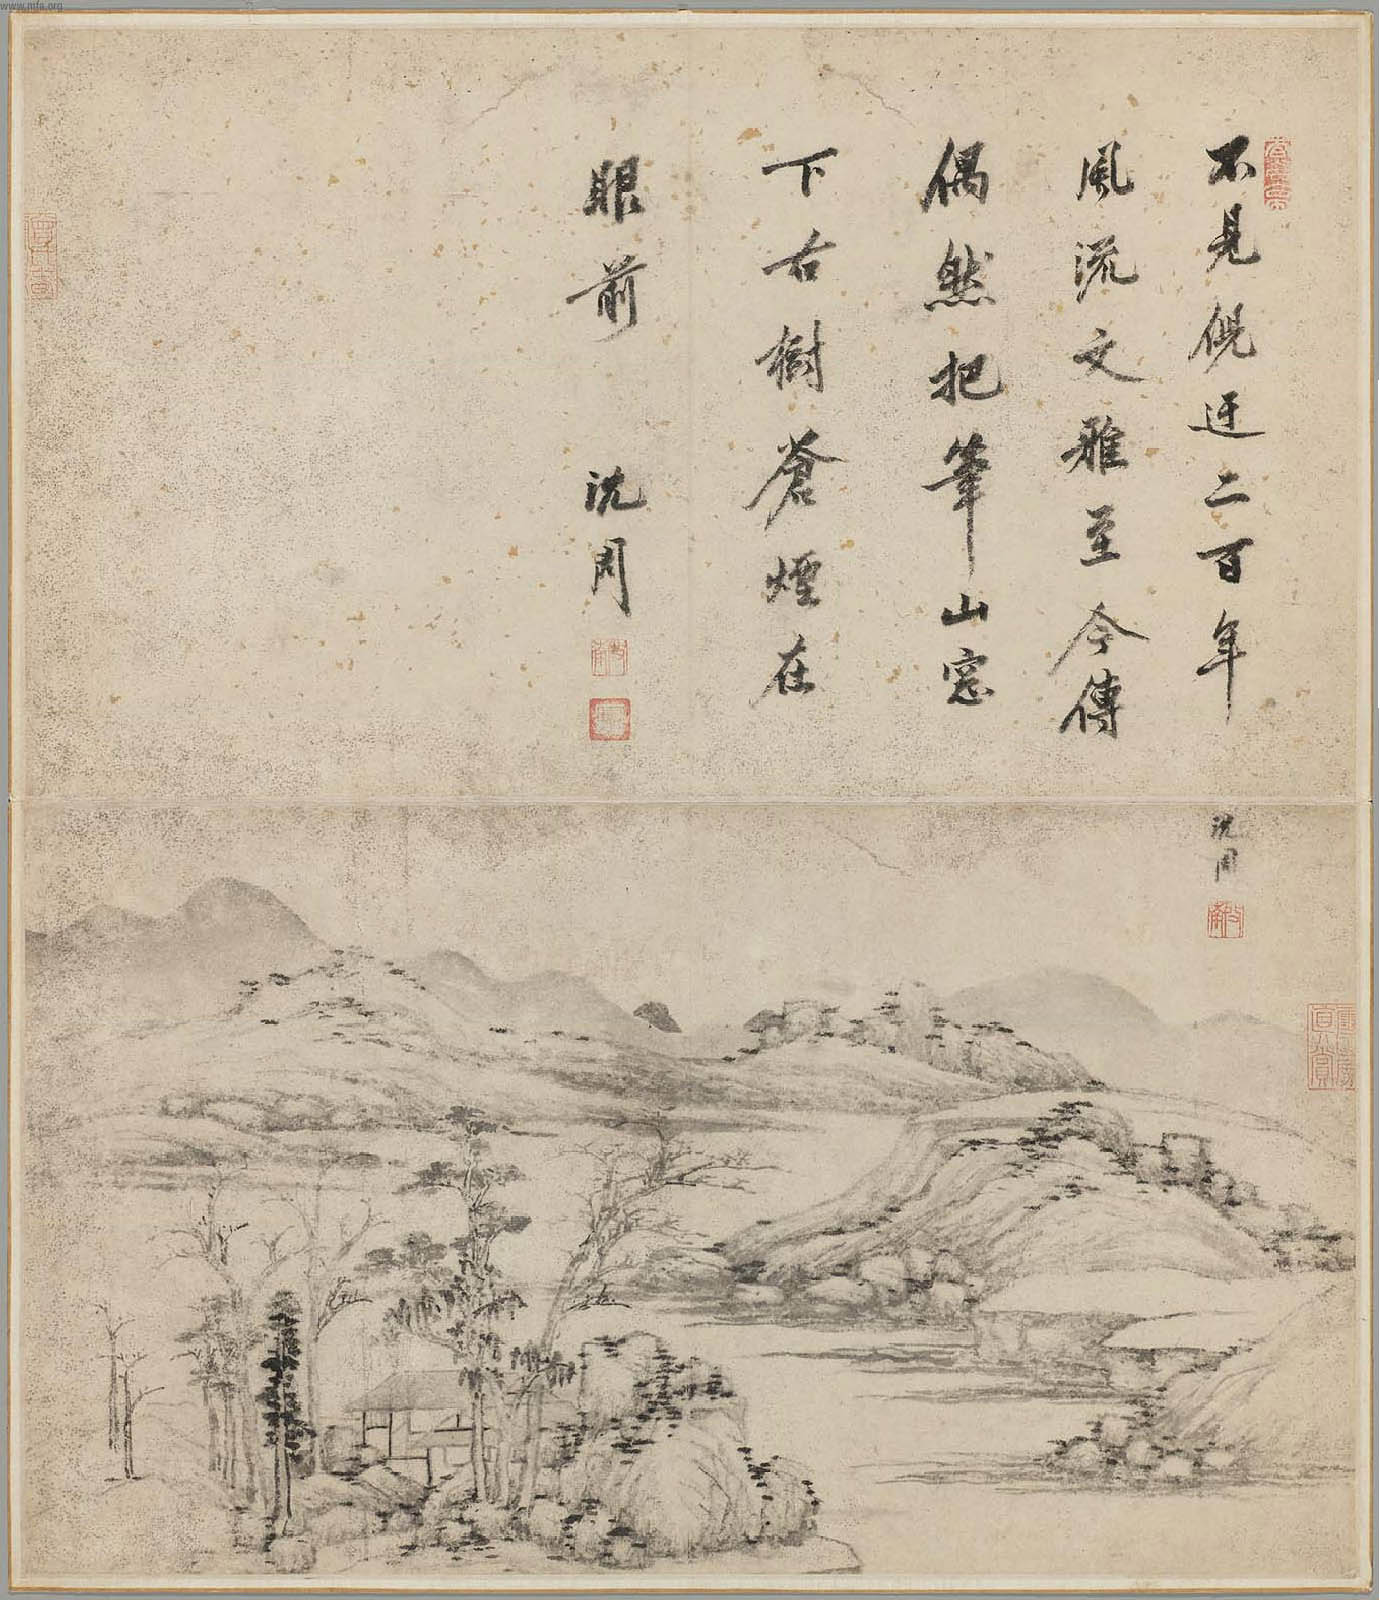 www.mfa.org
不見倪迂二百年
風流文雅至今傳
偶然把筆山窓
下古樹蒼煙在
眼前
沈周
沈周
啟南